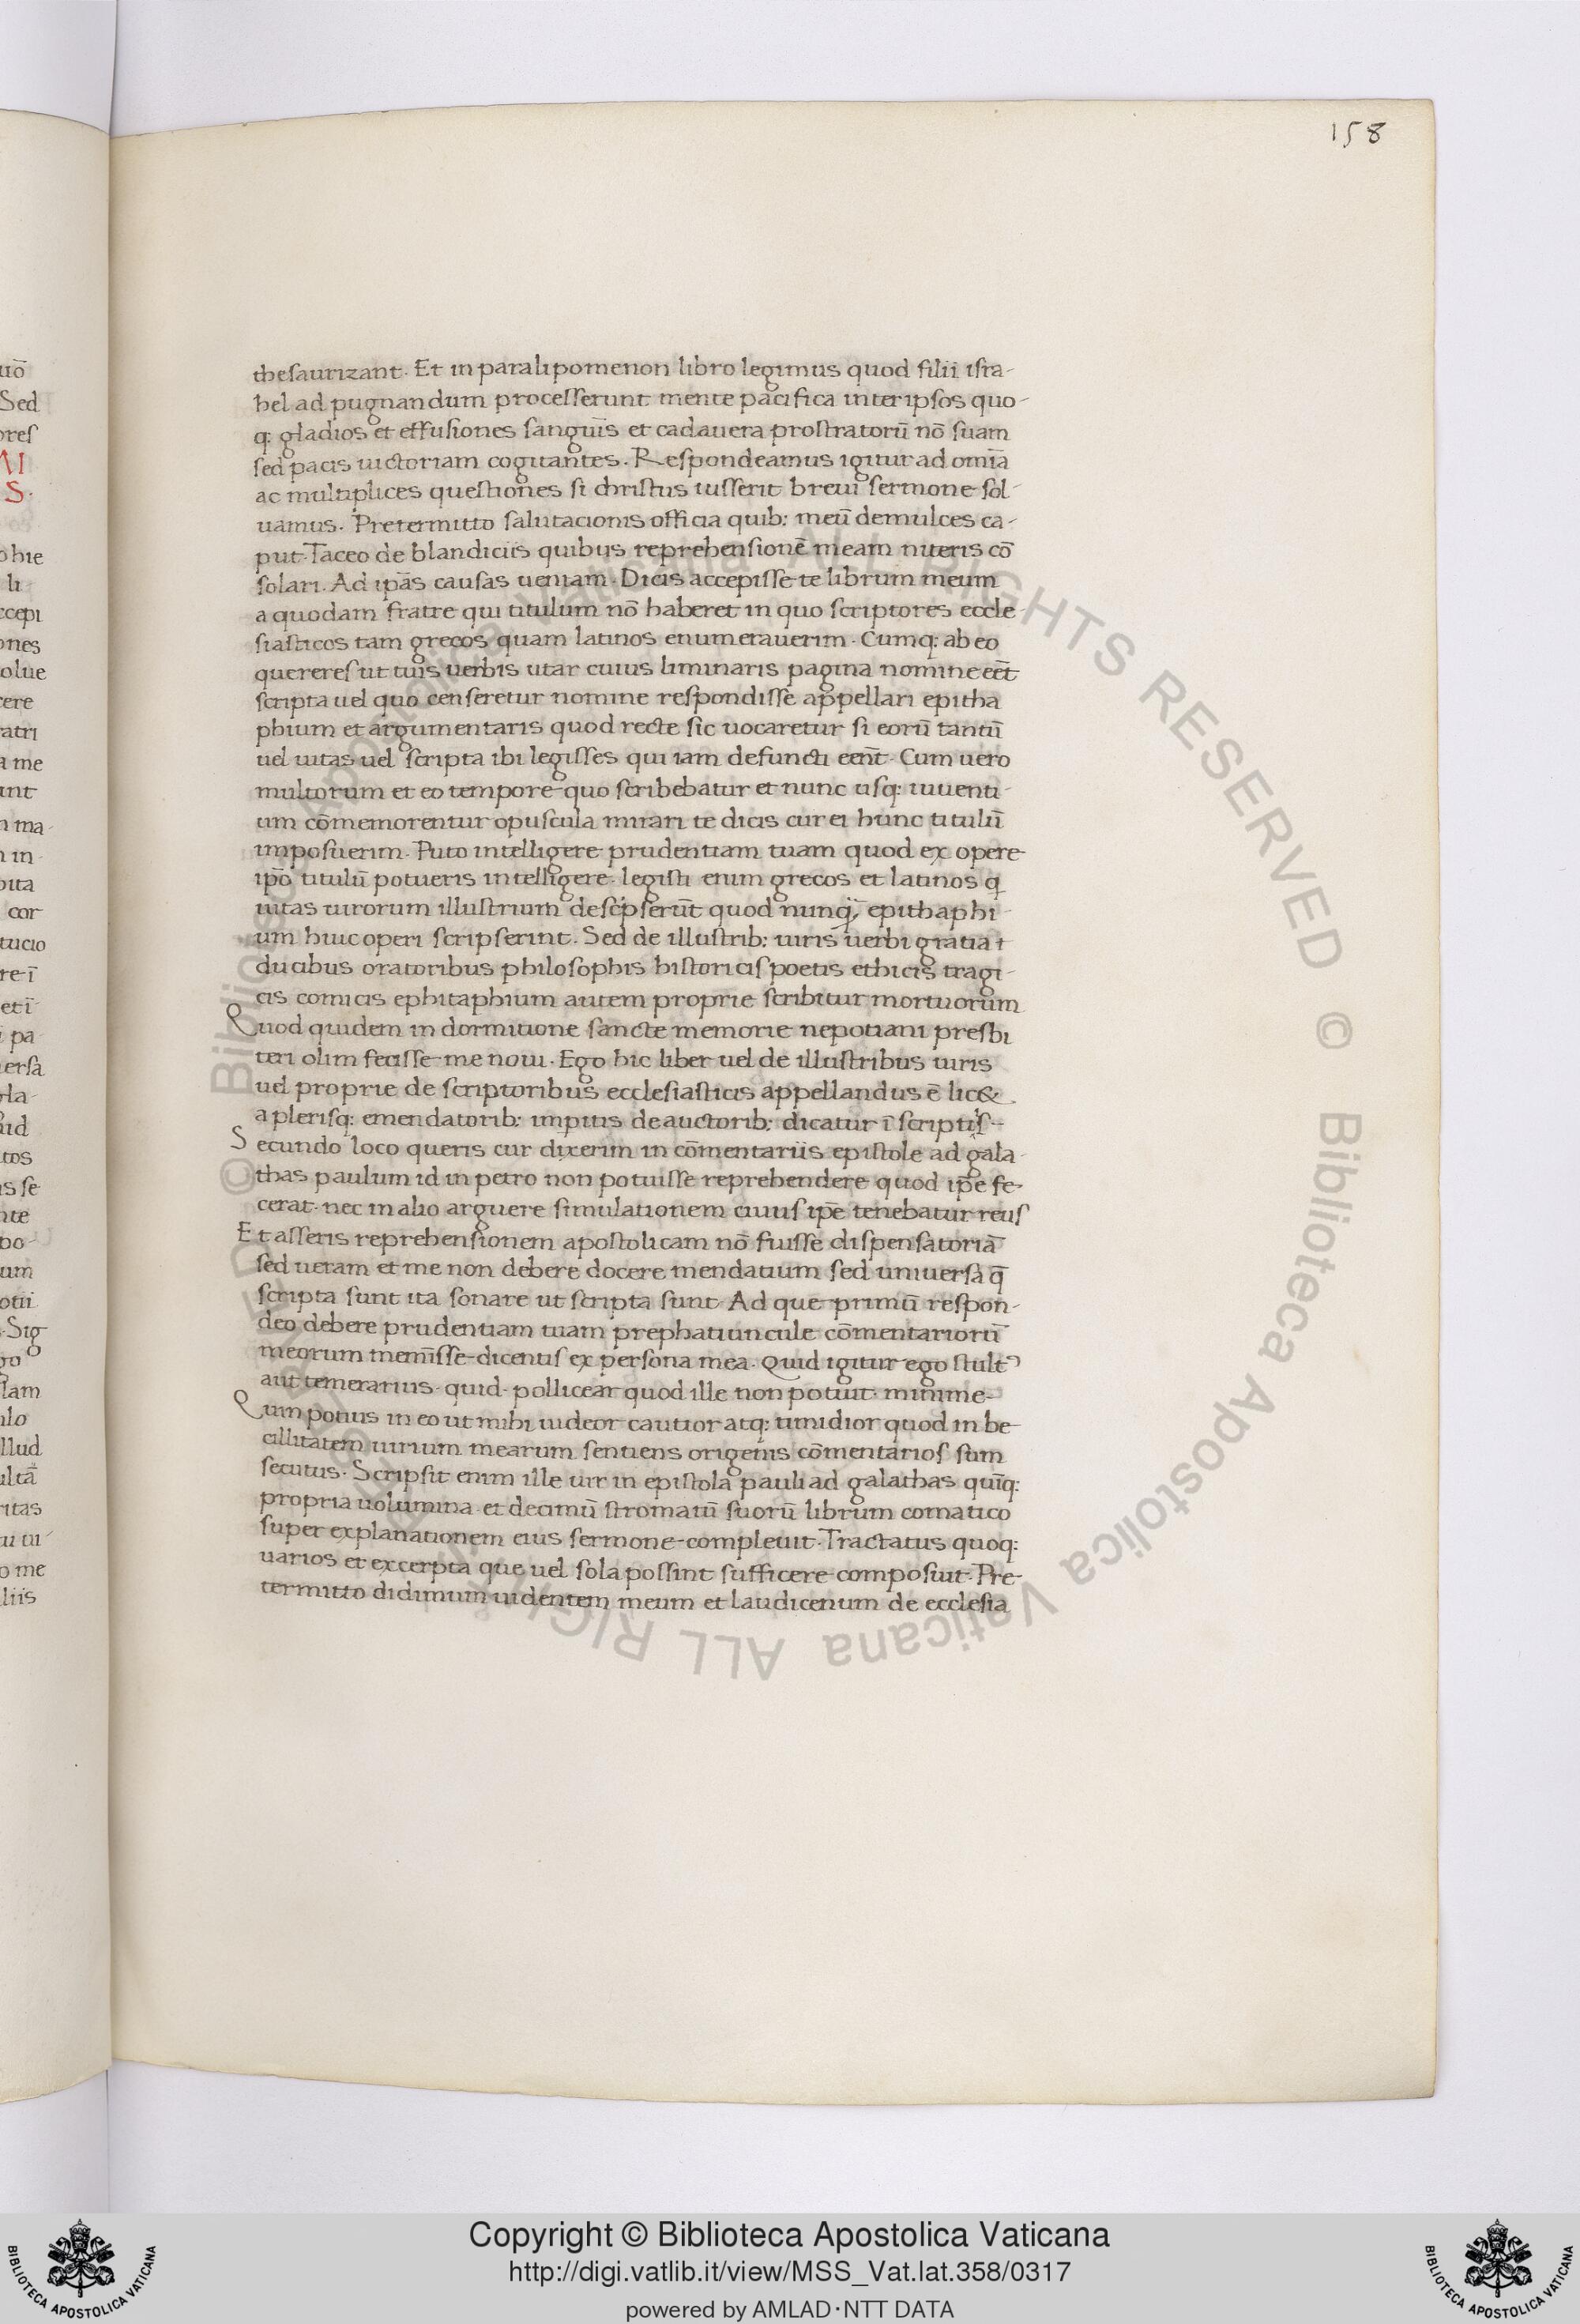 158
thesaurizant. Et in paralipomenon libro legimus quod filii isra-
hel ad pugnandum processerunt mente pacifica inter ipsos quo-
q: gladios et effusiones sanguīs et cadauera prostratorū nō suam
sed pacis uictoriam cogitantes. Respondeamus igitur ad omīa
ac multiplices questiones si christus iusserit breui sermone sol-
uamus. Pretermitto salutacionis officia quib: meū demulces ca-
put. Taceo de blandiciis quibus reprehensionē meam niteris cō
solari. Ad ipās causas ueniam. Dicis accepisse te librum meum
a quodam fratre qui titulum nō haberet in quo scriptores eccle-
siasticos tam grecos quam latinos enumerauerim. Cumq: ab eo
quereres ut tuis uerbis utar cuius liminaris pagina nomine eēt
scripta uel quo censeretur nomine respondisse appellari epitha
phium et argumentaris quod recte sic uocaretur si eorū tantū
uel uitas uel scripta ibi legisses qui iam defuncti eēnt. Cum uero
multorum et eo tempore quo scribebatur et nunc usq: iuuenti-
um cōmemorentur opuscula mirari te dicis cur ei hunc titulū
imposuerim. Puto intelligere prudentiam tuam quod ex opere
ipō titulū potueris intelligere. legisti enim grecos et latinos q
uitas uirorum illustrium descpserūt quod nunq epithaphi-
um huic operi scripserint. Sed de illustrib: uiris uerbi gratia i
ducibus oratoribus philosophis historicis poetis ethicis tragi-
cis comicis ephitaphium autem proprie scribitur mortuorum
Quod quidem in dormitione sancte memorie nepotiani presbi
teri olim fecisse me noui. Ego hic liber uel de illustribus uiris
uel proprie de scriptoribus ecclesiasticis appellandus ē lic&
a plerisq: emendatorib: impitis de auctorib: dicatur ī scriptis
Secundo loco queris cur dixerim in cōmentariis epistole ad gala-
thas paulum id in petro non potuisse reprehendere quod ipē fe-
cerat. nec in alio arguere simulationem cuius ipē tenebatur reus
Et asseris reprehensionem apostolicam nō fuisse dispensatoriā
sed ueram et me non debere docere mendatium sed uniuersa q̄
scripta sunt ita sonare ut scripta sunt. Ad que primū respon-
deo debere prudentiam tuam prephatiuncule cōmentariorū
meorum memīsse dicentis ex persona mea. Quid igitur ego stultꝰ
aut temerarius. quid. pollicear quod ille non potuit. minime
Quin potius in eo ut mihi uideor cautior atq: timidior quod in be
cillitatem uirium mearum sentiens origenis cōmentarios sum
secutus. Scripsit enim ille uir in epistola pauli ad galathas quīq:
propria uolumina. et decimū stromatū suorū librum comatico
super explanationem eius sermone compleuit. Tractatus quoq:
uarios et excerpta que uel sola possint sufficere composuit. Pre-
termitto didimum uidentem meum et laudicenum de ecclesia
Copyright © Biblioteca Apostolica Vaticana
http://digi.vatlib.it/view/MSS_Vat.lat.358/0317
powered by AMLAD·NTT DATA